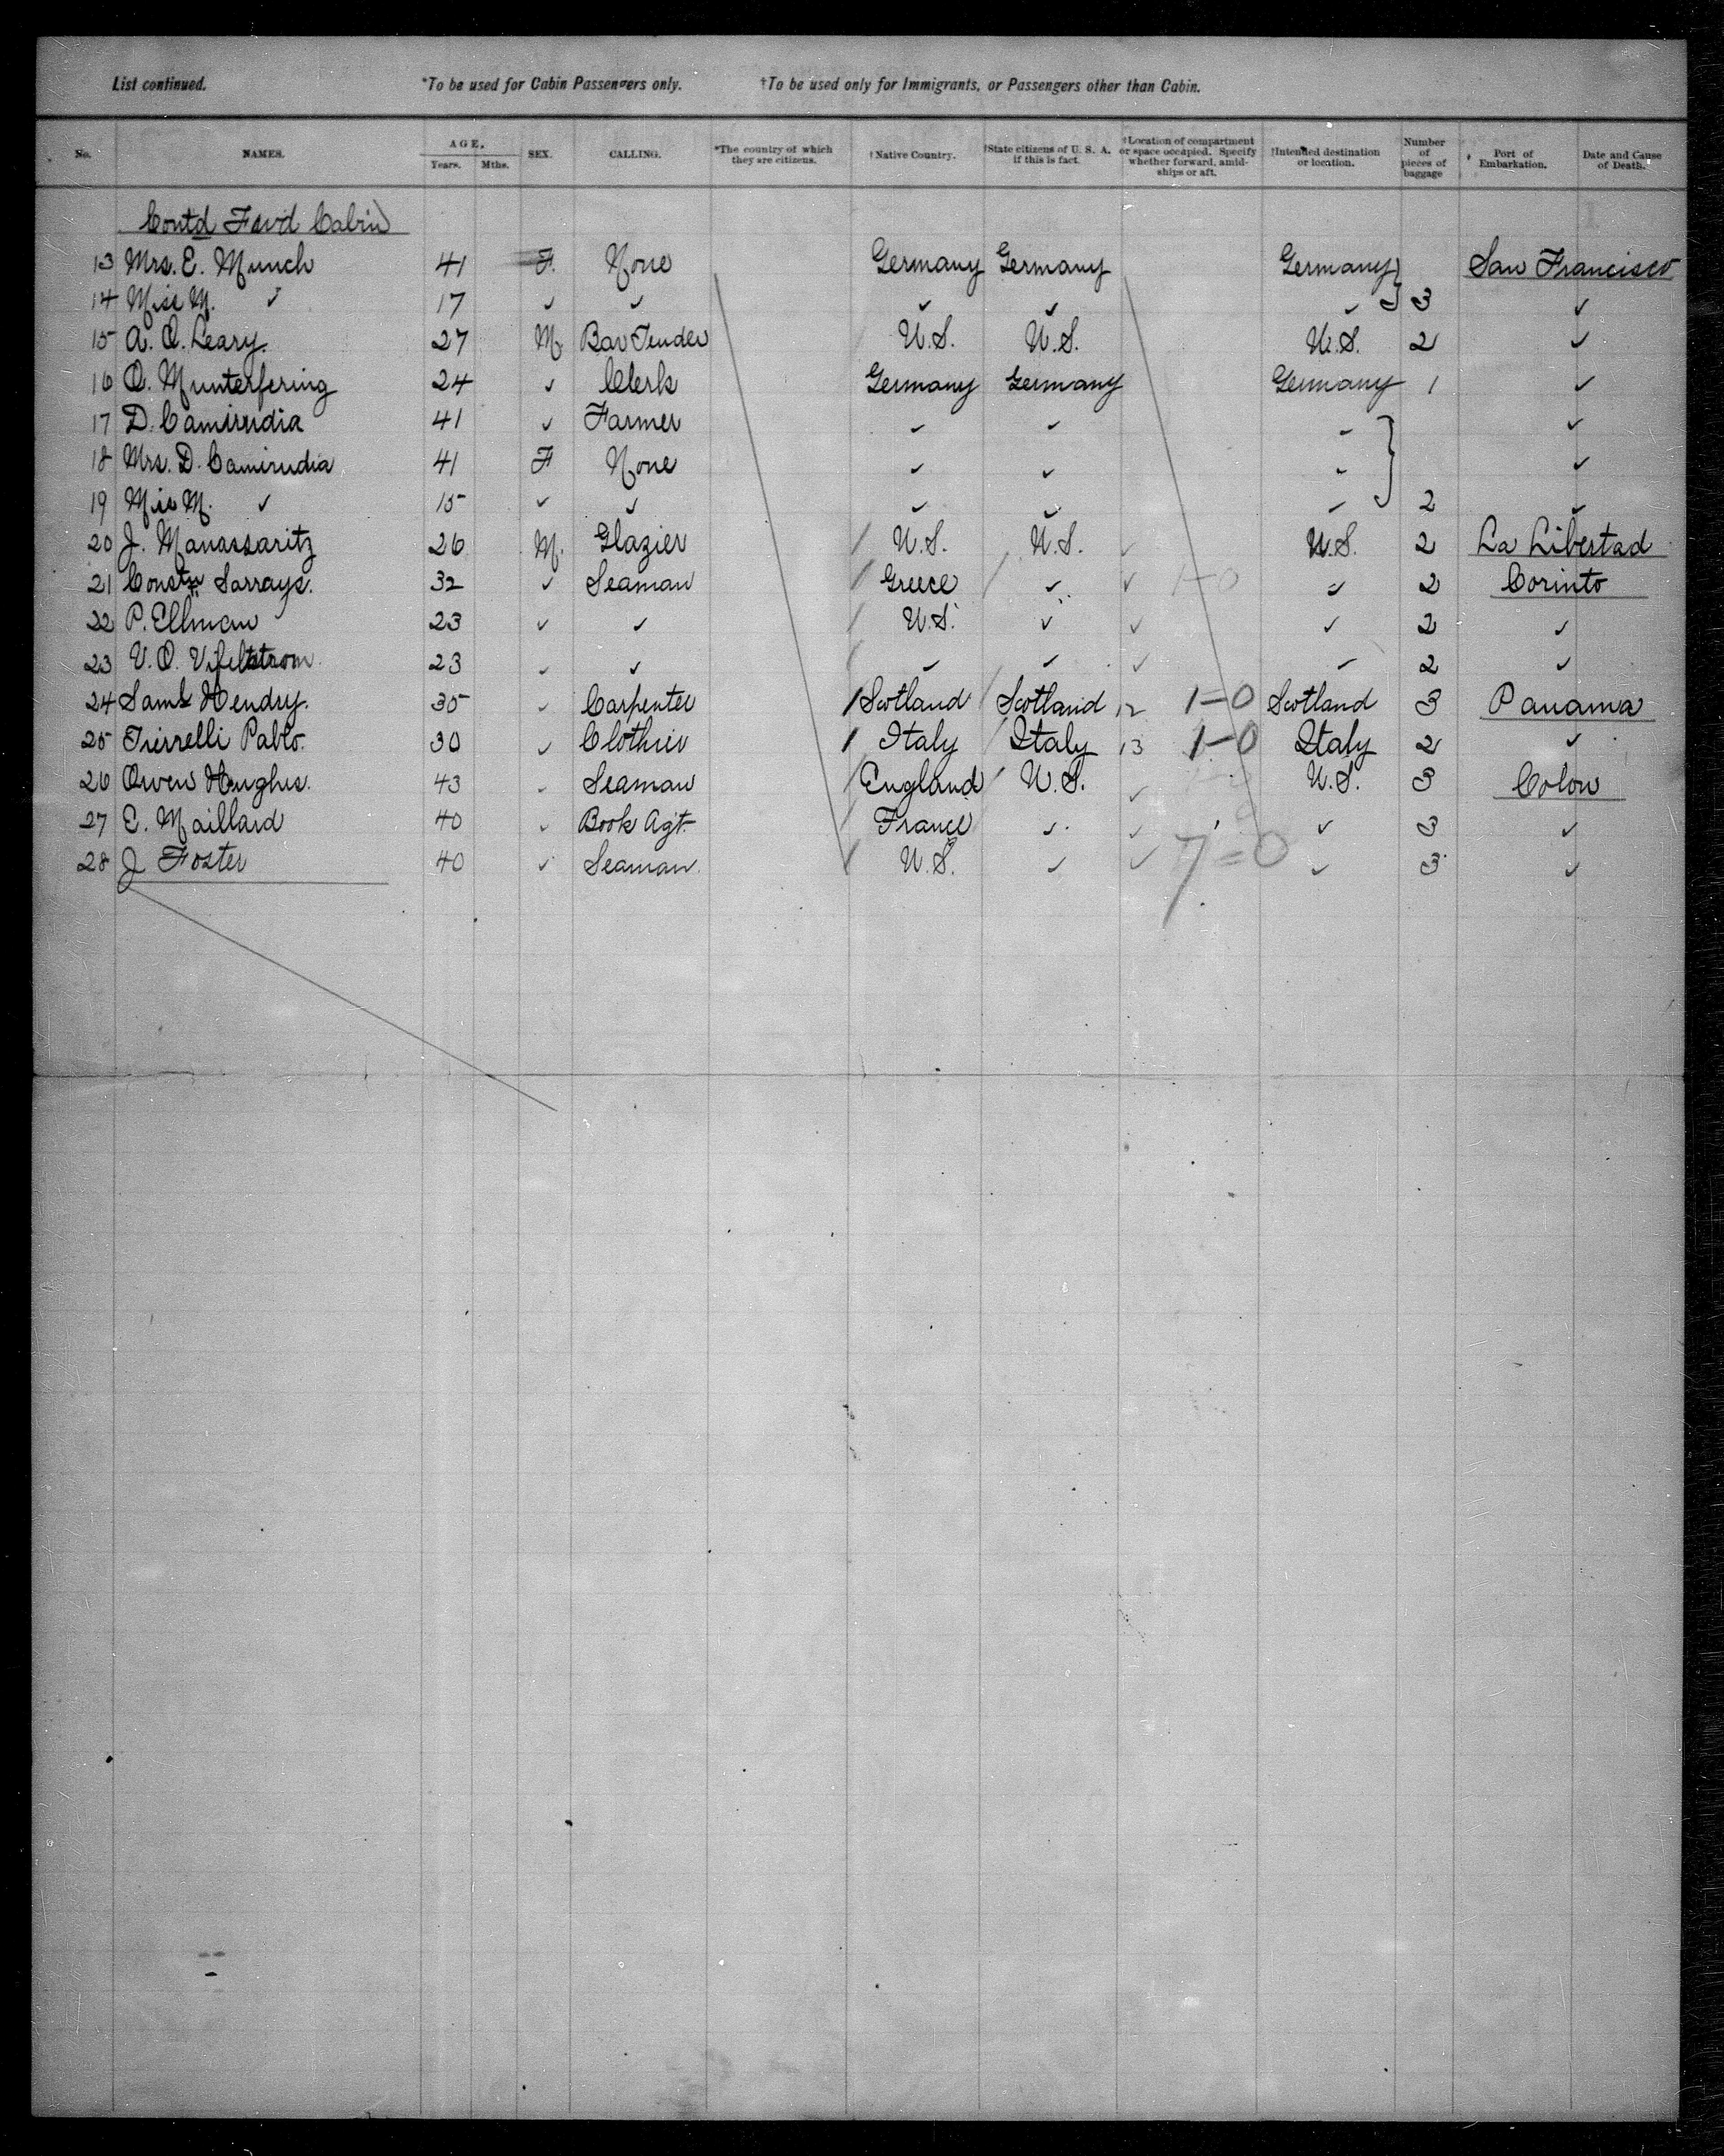 List continued. *To be used for Cabin Passengers only. †To be used only for Immigrants, or Passengers other than Cabin.
No. NAMES. AGE, Years. Mths. SEX. CALLING. *The country of which they are citizens. †Native Country. †State citizens of U. S. A. if this is fact. †Location of compartment or space occupied. Specify whether forward, amidships or aft. †Intended destination or location. Number of pieces of baggage Port of Embarkation. Date and Cause of Death.
Contd Forwd Cabin
13 Mrs. E. Munch 41 F. None Germany Germany Germany } San Francisco
14 Miss M. ✓ 17 ✓ ✓ ✓ ✓ ✓ } 3 ✓
15 A. O. Leary. 27 M. Bar Tender U.S. U.S. U.S. 2 ✓
16 O. Munterfering 24 ✓ Clerk Germany Germany Germany 1 ✓
17 D. Camirudia 41 ✓ Farmer ✓ ✓ ✓ } ✓
18 Mrs. D. Camirudia 41 F None ✓ ✓ ✓ ✓
19 Miss M. ✓ 15 ✓ ✓ ✓ ✓ ✓ 2 ✓
20 J. Manassaritz 26 M. Glazier / U.S. U.S. ✓ U.S. 2 La Libertad
21 Sarrays. 32 ✓ Seaman / Greece / ✓ ✓ 1-0 ✓ 2 Corinto
22 P. Ellman 23 ✓ ✓ / U.S. ✓ ✓ ✓ 2 ✓
23 V. O. 23 ✓ ✓ / ✓ ✓ ✓ ✓ 2 ✓
24 Saml Hendry. 35 ✓ Carpenter / Scotland / Scotland 12 1-0 Scotland 3 Panama
25 Tierrelli Pablo. 30 ✓ Clothier / Italy / Italy 13 1-0 Italy 2 ✓
26 Owen Hughes. 43 ✓ Seaman / England / U.S. ✓ U.S. 3 Colon
27 E. Maillard 40 ✓ Book Agt. / France ✓ ✓ ✓ 3 ✓
28 J Foster 40 ✓ Seaman. / U.S. ✓ ✓ 7=0 ✓ 3 ✓